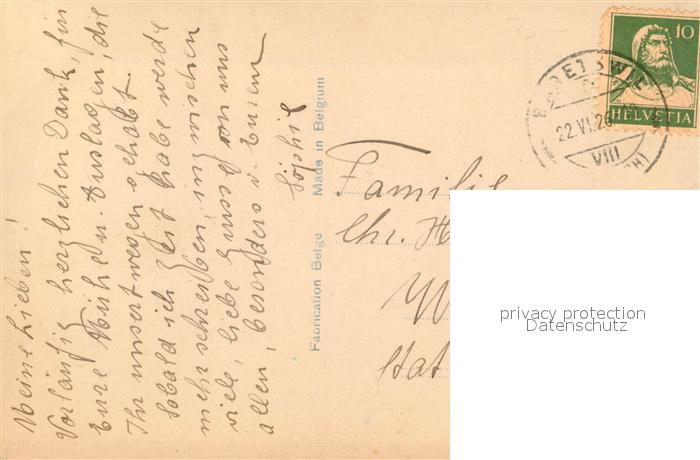 Meine Lieben!
Vorläufig herzlichen Dank, für
Eure Mühe u. Auslagen, die
Ihr unsertwegen gehabt.
Sobald ich Zeit habe werde
mehr schreiben, inzwischen
viele, liebe Grüsse von uns
allen, besonders v. Eurem
Sophie
Fabrication Belge Made in Belgium
10
HELVETIA
22.VI.26
VIII
Familie
Chr. H
W
Stat
privacy protection
Datenschutz